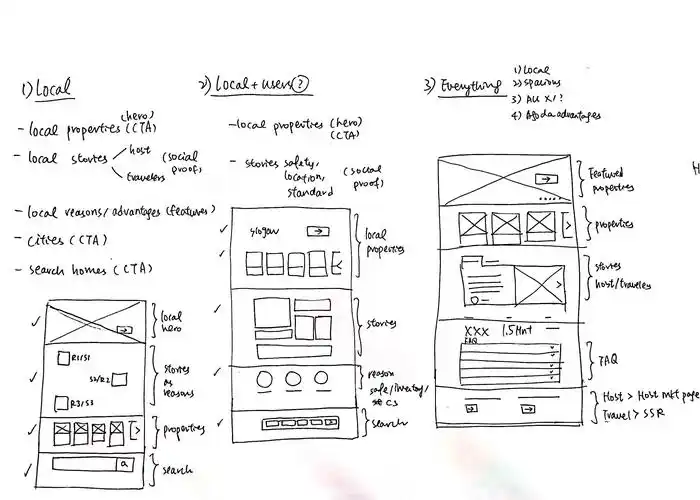 1) Local
- local properties (hero) (CTA)
- local stories host travelers (social proof)
- local reasons/advantages (features)
- cities (CTA)
- search homes (CTA)
local hero
R1/S1
S2/R2
R3/S3
stories as reasons
properties
search
2) Local + users?
- local properties (hero) (CTA)
- stories safety, location, standard (social proof)
slogan
local properties
stories
reason
safe/inventory/
search
3) Everything
1) Local
2) spacious
3)
4) Agoda advantages
Featured properties
properties
stories
host/traveler
XXX
FAQ
FAQ
Host > Host mkt page
Travel > SSR
H